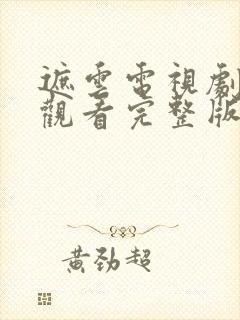 遮雲電視劇
觀看完整版
黃勁超